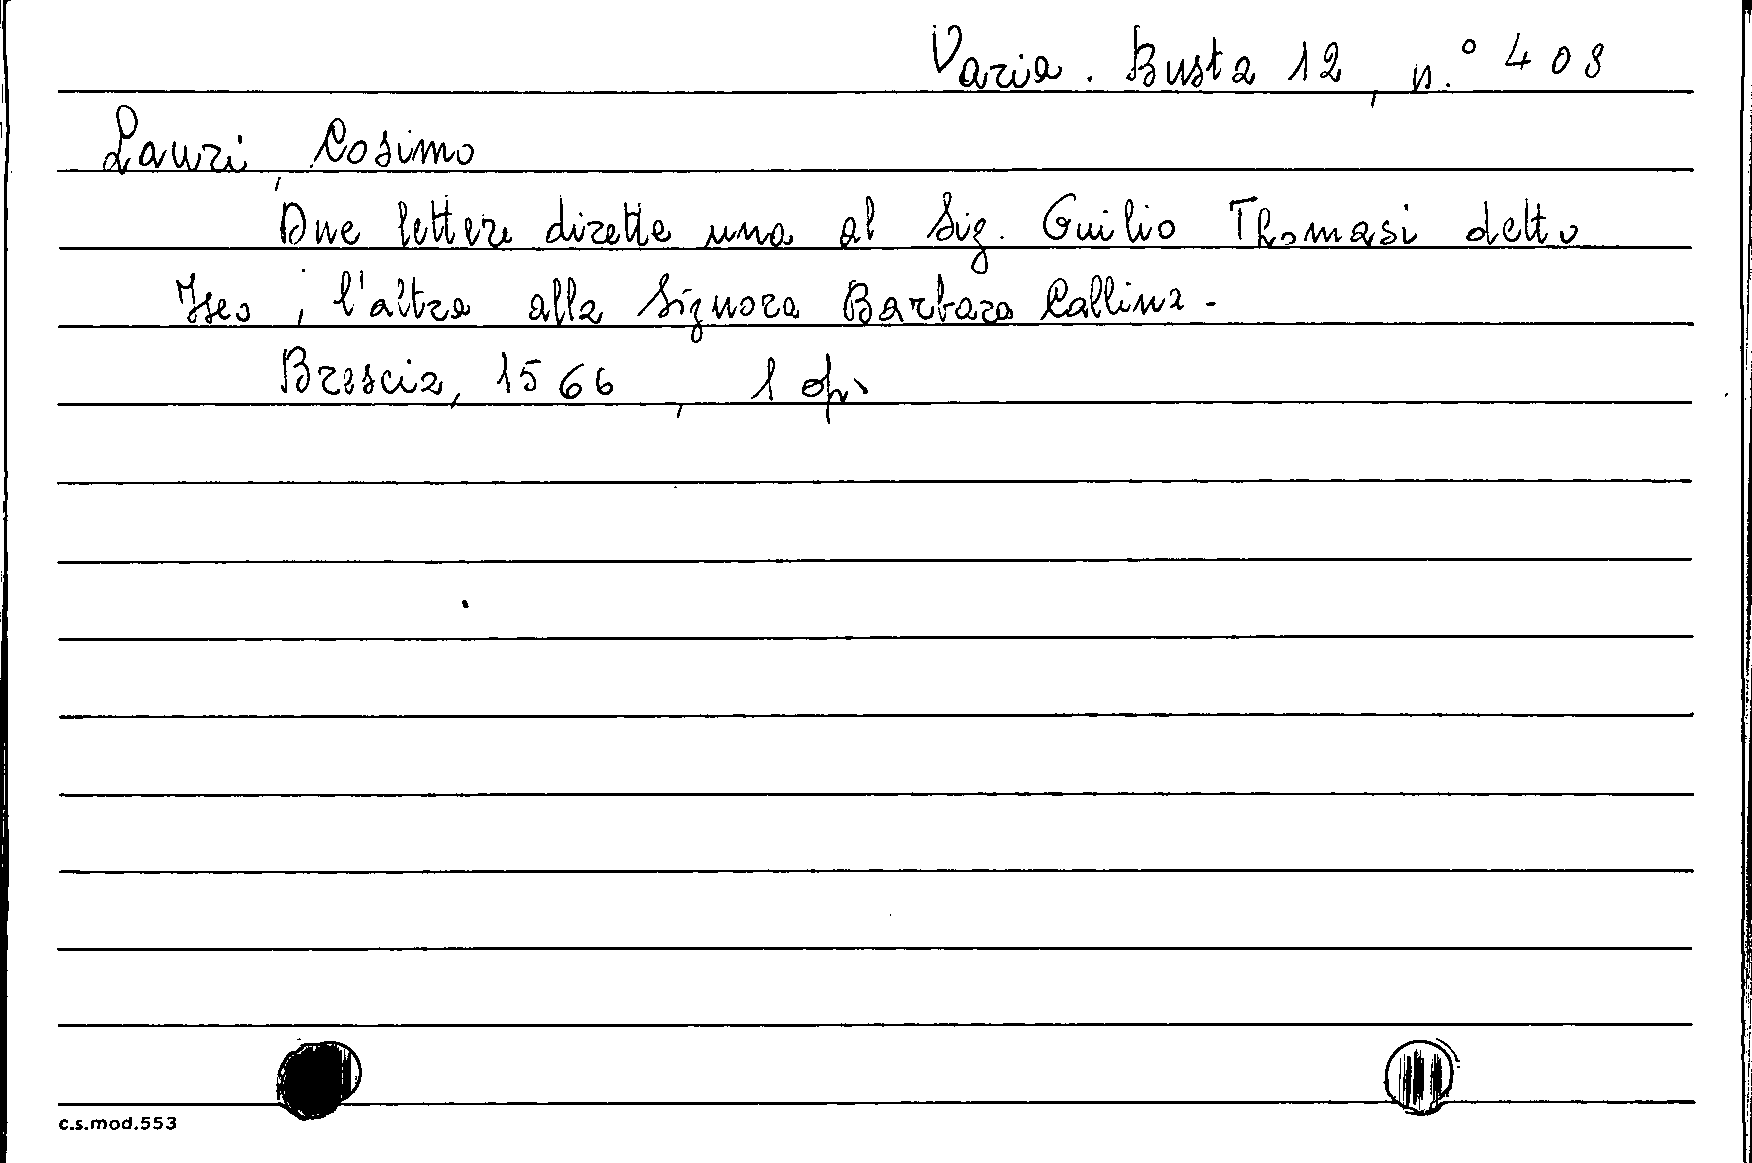 Varia. Busta 12, n.° 408
Lauri, Cosimo
Due lettere dirette una al Sig. Guilio Thomasi detto
Iseo, l'altra alla Signora Barbara Callina.
Brescia, 1566, 1 op.
c.s.mod.553